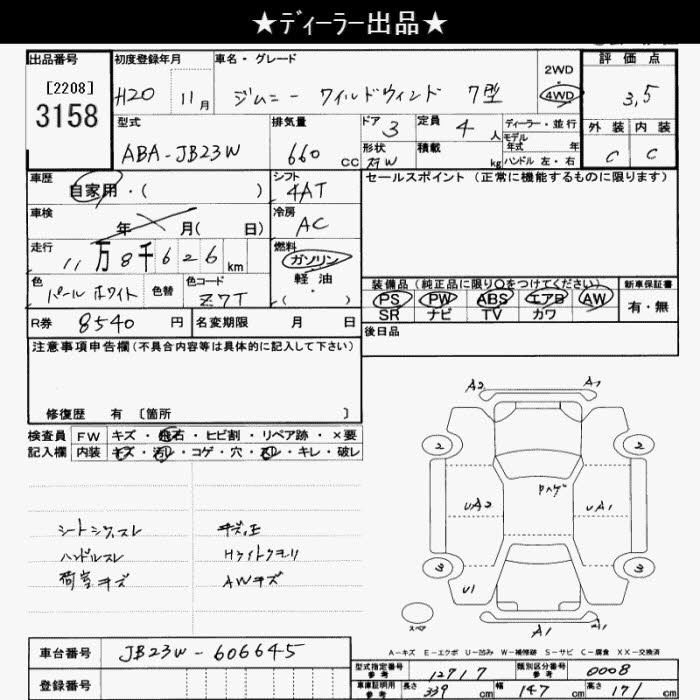 ★ディーラー出品★
出品番号 初度登録年月 車名・グレード 2WD 評価点
[2208] 3158 H20 11月 ジムニー ワイルドウィンド 7型 4WD 3,5
型式 排気量 ドア 3 定員 4 人 ディーラー・並行 外装 内装
ABA-JB23W 660 CC 形状 積載 kg モデル年式 年 ハンドル 左・右 C C
車歴 自家用・( ) シフト 4AT セールスポイント(正常に機能するものに限ります)
車検 年 月( 日) 冷房 AC
走行 11万8千626km 燃料 ガソリン 軽油 ・( )
色 パールホワイト 色替 色コード Z7T
装備品(純正品に限り〇をつけてください) 新車保証書
PS PW ABS エアB AW 有・無
SR ナビ TV カワ
R券 8540 円 名変期限 月 日 後日品
注意事項申告欄(不具合内容等は具体的に記入して下さい)
修復歴 有 [箇所 ]
検査員 FW キズ・飛石・ヒビ割・リペア跡・×要
記入欄 内装 キズ・汚れ・コゲ・穴・スレ・キレ・破レ
シートシワスレ
ハンドルスレ
荷室キズ
Hライトクモリ
AWキズ
A2 A1
2 2
Pハゲ
UA2 UA1
3 3
U1
スペア A1
A-キズ E-エクボ U-凹み W-補修跡 S-サビ C-腐食 XX-交換済
車台番号 JB23W-606645
登録番号
型式指定番号 参考 12717 類別区分番号 参考 0008
車庫証明用 参考 長さ 339 cm 幅 147 cm 高さ 171 cm